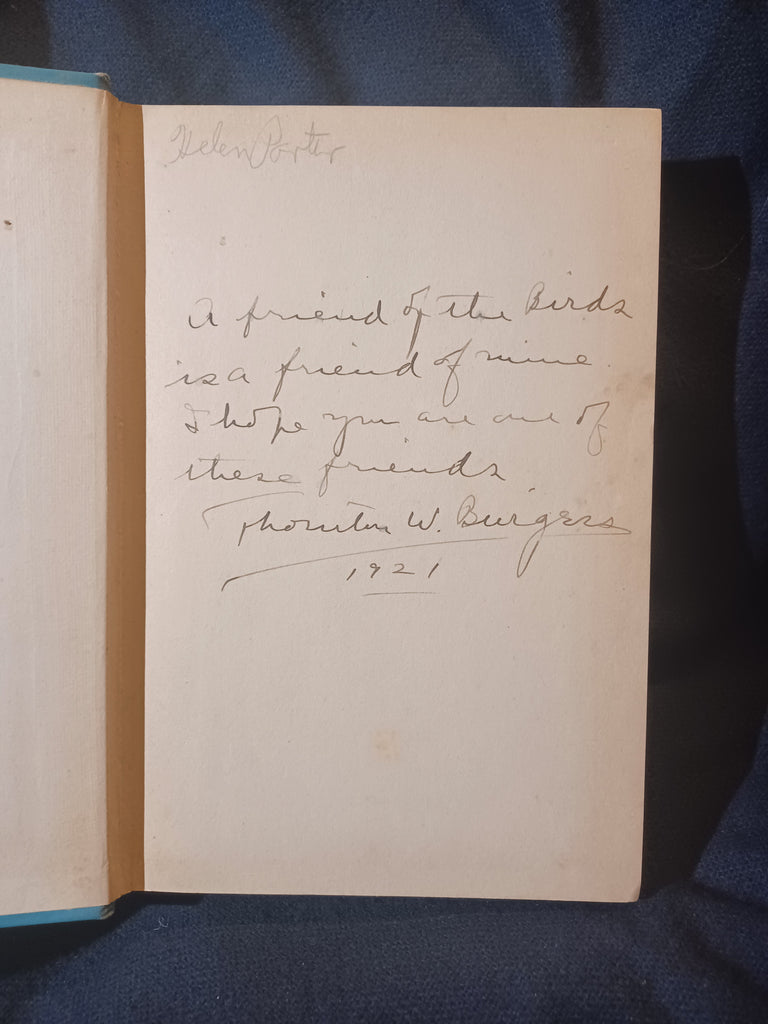 Helen Porter
A friend of the Birds
is a friend of mine.
I hope you are one of
these friends
Thornton W. Burgess
1921